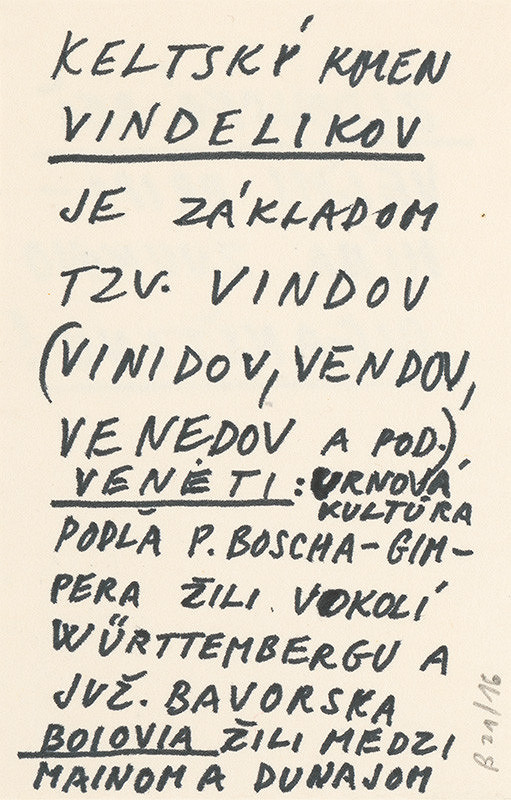 KELTSKÝ KMEN
VINDELIKOV
JE ZÁKLADOM
TZV. VINDOV
(VINIDOV, VENDOV,
VENEDOV A POD.),
VENÉTI: URNOVÁ
KULTÚRA
PODLÄ P. BOSCHA-GIM-
PERA ŽILI VOKOLÍ
WÜRTTEMBERGU A
JUŽ. BAVORSKA
BOIOVIA ŽILI MEDZI
MAINOM A DUNAJOM
B 21/16